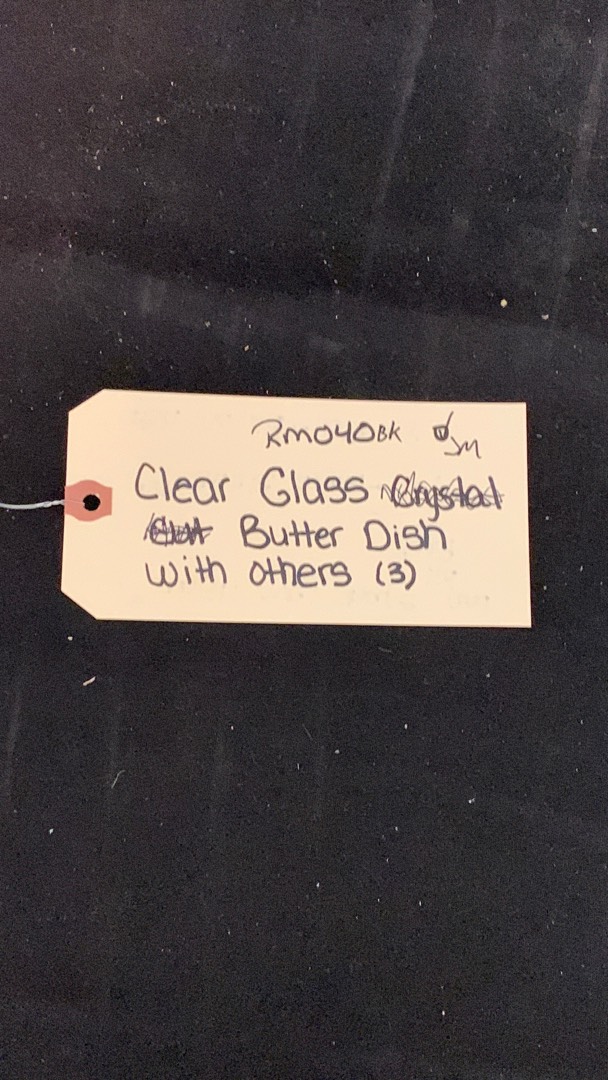 RM040BK JM
Clear Glass Crystal
Cut Butter Dish
with others (3)